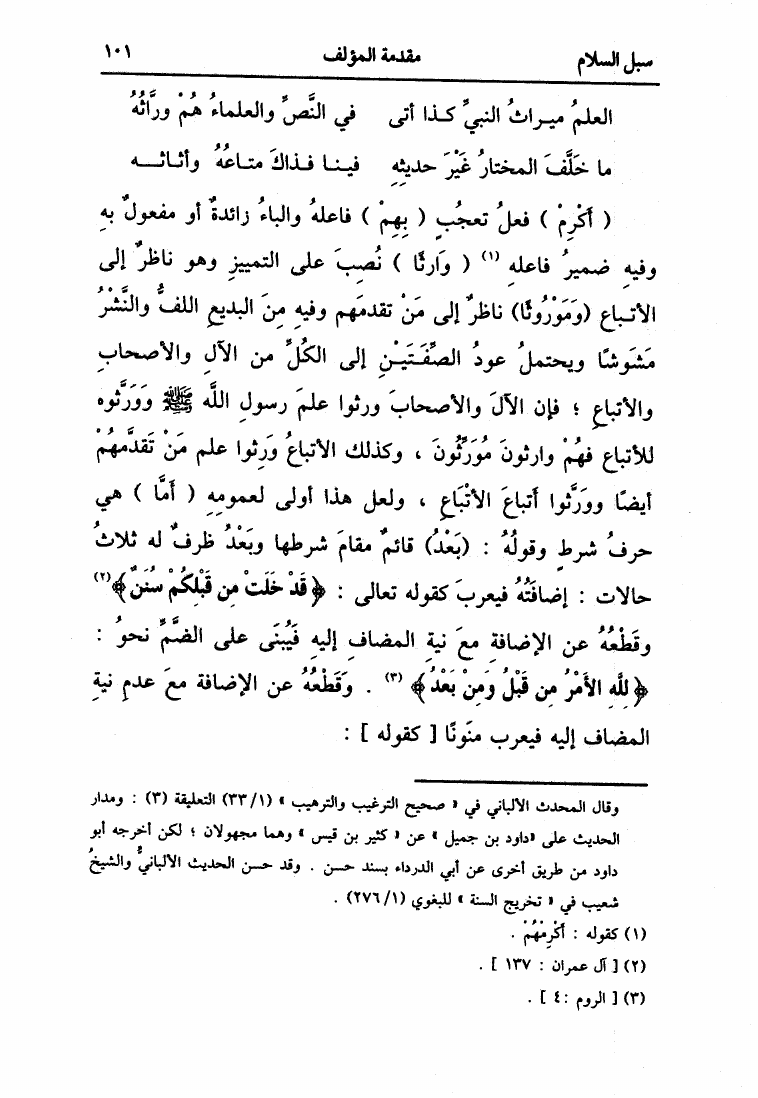 سبل السلام مقدمة المؤلف ١٠١
العلمُ ميـراثُ النبيِّ كـذا أتى في النَّصِّ والعلماءُ هُمْ ورَّاثُهُ
ما خلَّفَ المختارُ غَيْرَ حديثِهِ فينـا فـذاكَ متـاعُهُ وأثـاثـــه
( أَكْرِمْ ) فعلُ تعجُبٍ ( بِهِمْ ) فاعلهُ والباءُ زائدةٌ أو مفعولٌ بهِ
وفيهِ ضميرُ فاعلهِ (١) ( وَارثًا ) نُصِبَ على التمييزِ وهو ناظرٌ إلى
الأتبـاعِ (وَمَوْرُوثًا) ناظرٌ إلى مَنْ تقدمَهم وفيهِ مِنَ البديعِ اللفُّ والنَّشْرُ
مَشَوشًا ويحتملُ عودُ الصِّفَـتَيْـنِ إلى الكُلِّ من الآلِ والأصحابِ
والأتباعِ ؛ فإن الآلَ والأصحابَ ورثوا علمَ رسولِ اللَّه ﷺ وَوَرَّثوه
للأتباع فهُمْ وارثونَ مُوَرِّثُونَ ، وكذلك الأتباعُ وَرِثوا علم مَنْ تَقَدَّمهُمْ
أيضًا وورَّثوا أتباعَ الأتْبَاعِ ، ولعل هذا أولى لعمومهِ ( أَمَّا ) هي
حرفُ شرطٍ وقولُهُ : (بَعْدُ) قائمٌ مقامَ شرطها وبَعْدُ ظرفٌ له ثلاثُ
حالات : إضافَتُهُ فيعربَ كقوله تعالى : ﴿قَدْ خَلَتْ مِن قَبْلِكُمْ سُنَنٌ﴾(٢)
وقَطْعُهُ عن الإضافةِ معَ نيةِ المضافِ إليهِ فَيُبْنَى على الضَّمِّ نحوُ :
﴿للَّهِ الأَمْرُ مِن قَبْلُ وَمِنْ بَعْدُ﴾ (٣) . وقَطْعُهُ عن الإضافة معَ عدمِ نيةِ
المضاف إليه فيعرب منَونًا [ كقوله ] :
وقال المحدث الألباني في « صحيح الترغيب والترهيب » (٣٣/١) التعليقة (٣) : ومدار
الحديث على «داود بن جميل » عن « كثير بن قيس » وهما مجهولان ؛ لكن أخرجه أبو
داود من طريق أخرى عن أبي الدرداء بسند حسن . وقد حسن الحديث الألبانيُّ والشيخُ
شعيب في « تخريج السنة » للبغوي (٢٧٦/١) .
(١) كقوله : أَكْرِمْهُمْ .
(٢) [ آل عمران : ١٣٧ ] .
(٣) [ الروم :٤ ] .